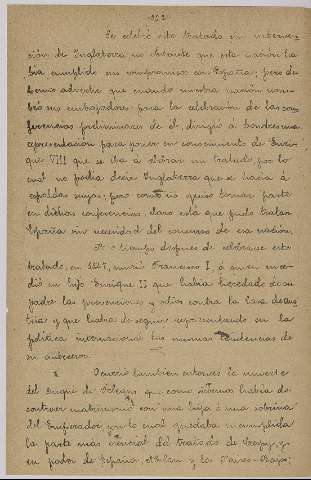 Se celebró este tratado sin interven-
ción de Inglaterra, no obstante que esta nación ha-
bía cumplido sus compromisos con España; pero de-
bemos advertir que cuando nuestra nación nom-
bró sus embajadores para la celebración de las con-
ferencias preliminares de él, dirigió á Londres una
representación para poner en conocimiento de Enri-
que VIII que se iba á elaborar un tratado, por lo
cual no podía decir Inglaterra que se hacía á
espaldas suyas; pero como no quiso tomar parte
en dichas conferencias, claro está que pudo tratar
España sin necesidad del concurso de esa nación.
Poco tiempo después de celebrarse este
tratado, en 1547, murió Francisco I, á quien suce-
dió su hijo Enrique II que había heredado de su
padre las prevenciones y odios contra la Casa de Aus-
tria y que había de seguir representando en la
política internacional las mismas tendencias de
su antecesor.
Ocurrió también entonces la muerte
del Duque de Orleans que, como sabemos había de
contraer matrimonio con una hija ó una sobrina
del Emperador, con lo cual quedaba incumplida
la parte más esencial del tratado de Crespy, y
en poder de España, Milan y los Paises-Bajos;